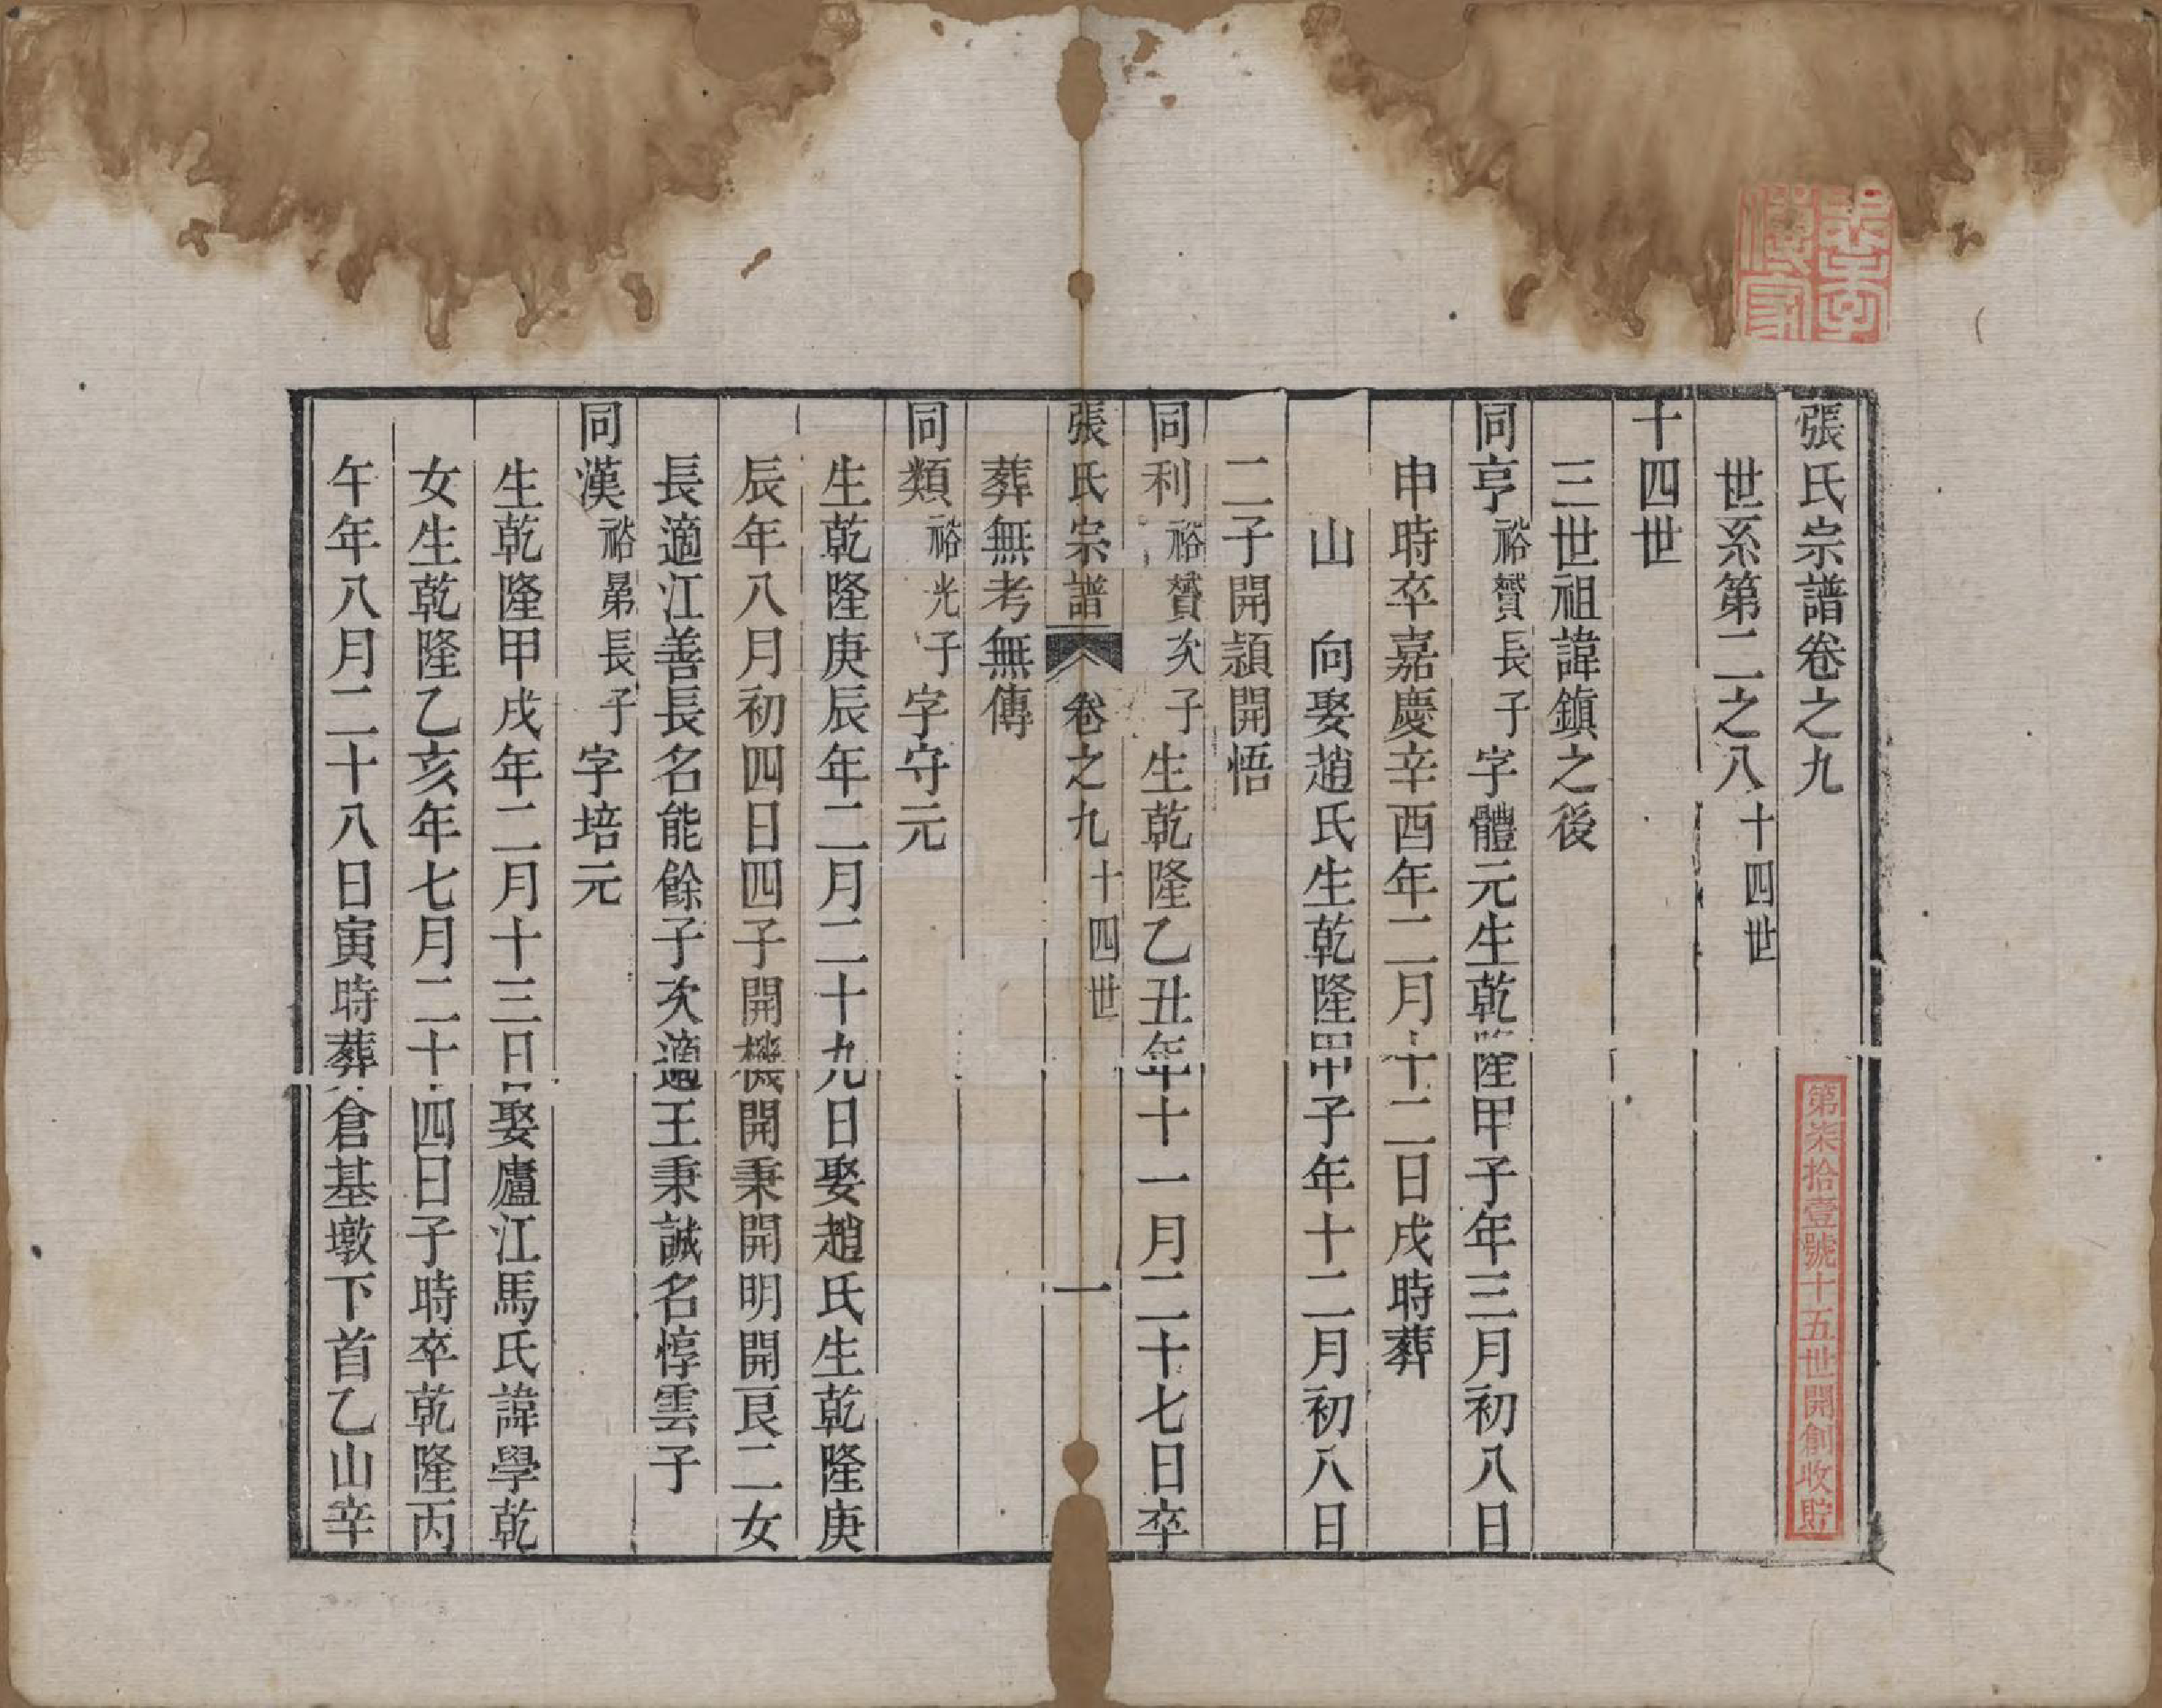 張氏宗譜卷之九
世系第二之八十四世
十四世
三世祖諱鎮之後
同亨裕贇長子字體元生乾隆甲子年三月初八日
申時卒嘉慶辛酉年二月十二日戌時葬
山　向娶趙氏生乾隆甲子年十二月初八日
二子開頴開悟
同利裕贇次子生乾隆乙丑年十一月二十七日卒
張氏宗譜　卷之九十四世　一
葬無考無傳
同類裕光子字守元
生乾隆庚辰年二月二十九日娶趙氏生乾隆庚
辰年八月初四日四子開機開秉開明開艮二女
長適江善長名能餘子次適王秉誠名惇雲子
同漢裕㬎長子字培元
生乾隆甲戌年二月十三日娶廬江馬氏諱學乾
女生乾隆乙亥年七月二十四日子時卒乾隆丙
午年八月二十八日寅時葬倉基墩下首乙山辛
第柒拾壹號十五世開創收貯